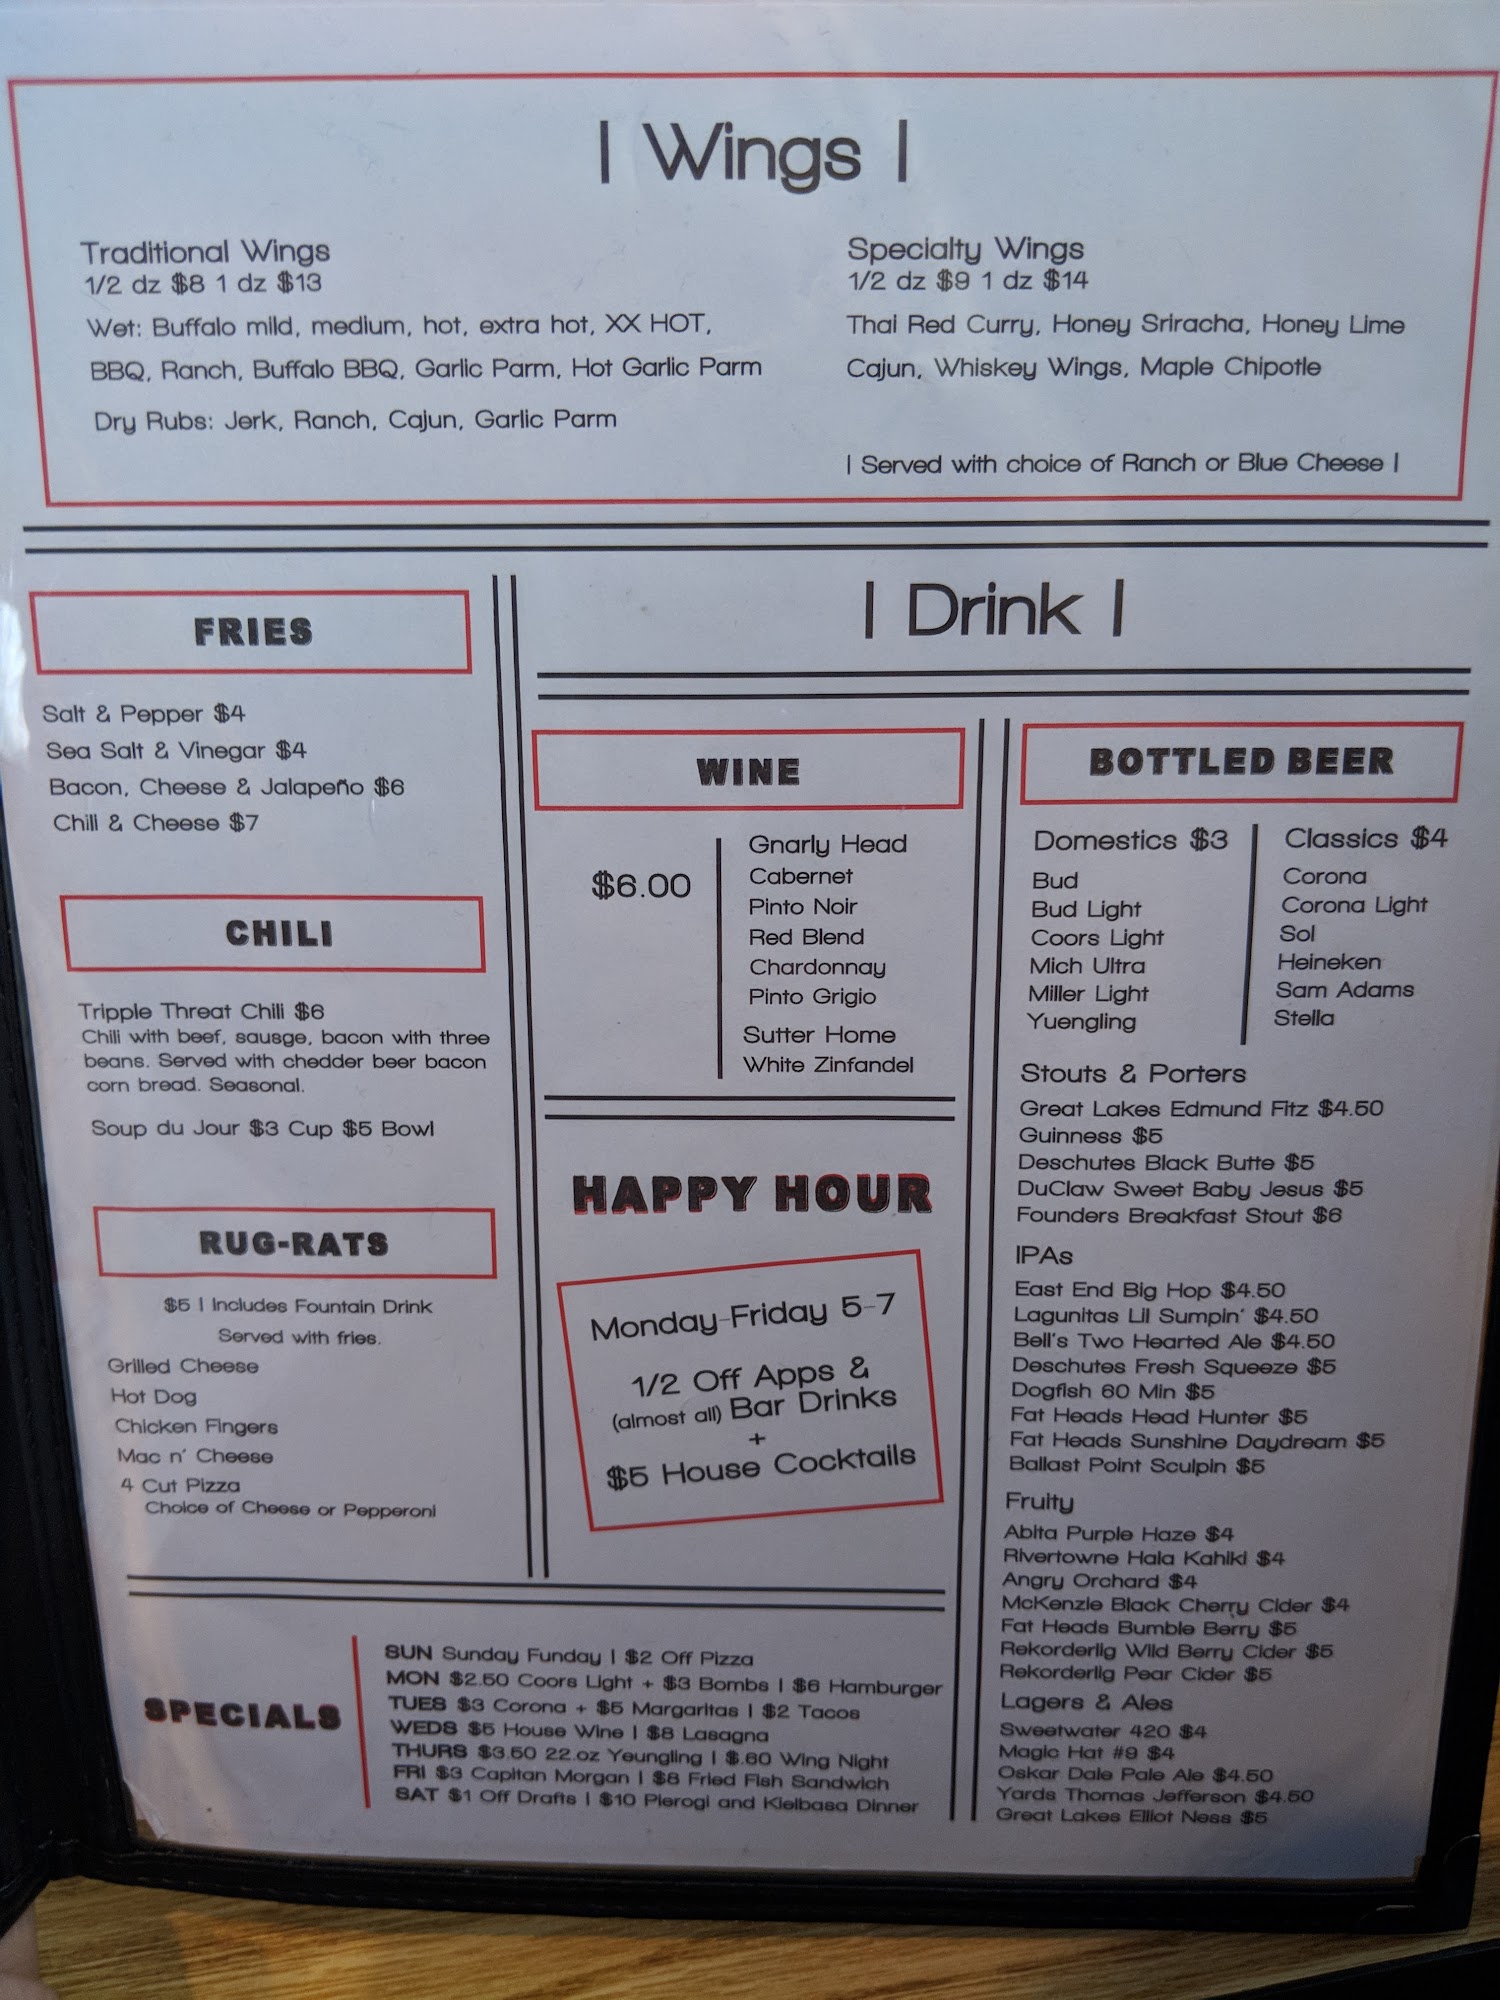 | Wings |
Traditional Wings
1/2 dz $8 1 dz $13
Wet: Buffalo mild, medium, hot, extra hot, XX HOT,
BBQ, Ranch, Buffalo BBQ, Garlic Parm, Hot Garlic Parm
Dry Rubs: Jerk, Ranch, Cajun, Garlic Parm
Specialty Wings
1/2 dz $9 1 dz $14
Thai Red Curry, Honey Sriracha, Honey Lime
Cajun, Whiskey Wings, Maple Chipotle
| Served with choice of Ranch or Blue Cheese |
FRIES
Salt & Pepper $4
Sea Salt & Vinegar $4
Bacon, Cheese & Jalapeño $6
Chili & Cheese $7
CHILI
Tripple Threat Chili $6
Chili with beef, sausge, bacon with three
beans. Served with chedder beer bacon
corn bread. Seasonal.
Soup du Jour $3 Cup $5 Bowl
RUG-RATS
$5 | Includes Fountain Drink
Served with fries.
Grilled Cheese
Hot Dog
Chicken Fingers
Mac n' Cheese
4 Cut Pizza
Choice of Cheese or Pepperoni
| Drink |
WINE
$6.00
Gnarly Head
Cabernet
Pinto Noir
Red Blend
Chardonnay
Pinto Grigio
Sutter Home
White Zinfandel
HAPPY HOUR
Monday-Friday 5-7
1/2 Off Apps &
(almost all) Bar Drinks
+
$5 House Cocktails
BOTTLED BEER
Domestics $3
Bud
Bud Light
Coors Light
Mich Ultra
Miller Light
Yuengling
Classics $4
Corona
Corona Light
Sol
Heineken
Sam Adams
Stella
Stouts & Porters
Great Lakes Edmund Fitz $4.50
Guinness $5
Deschutes Black Butte $5
DuClaw Sweet Baby Jesus $5
Founders Breakfast Stout $6
IPAs
East End Big Hop $4.50
Lagunitas Lil Sumpin' $4.50
Bell's Two Hearted Ale $4.50
Deschutes Fresh Squeeze $5
Dogfish 60 Min $5
Fat Heads Head Hunter $5
Fat Heads Sunshine Daydream $5
Ballast Point Sculpin $5
Fruity
Abita Purple Haze $4
Rivertowne Hala Kahiki $4
Angry Orchard $4
McKenzie Black Cherry Cider $4
Fat Heads Bumble Berry $5
Rekorderlig Wild Berry Cider $5
Rekorderlig Pear Cider $5
Lagers & Ales
Sweetwater 420 $4
Magic Hat #9 $4
Oskar Dale Pale Ale $4.50
Yards Thomas Jefferson $4.50
Great Lakes Elliot Ness $5
SPECIALS
SUN Sunday Funday | $2 Off Pizza
MON $2.50 Coors Light + $3 Bombs | $6 Hamburger
TUES $3 Corona + $5 Margaritas | $2 Tacos
WEDS $5 House Wine | $8 Lasagna
THURS $3.50 22.oz Yeungling | $.60 Wing Night
FRI $3 Capitan Morgan | $8 Fried Fish Sandwich
SAT $1 Off Drafts | $10 Pierogi and Kielbasa Dinner